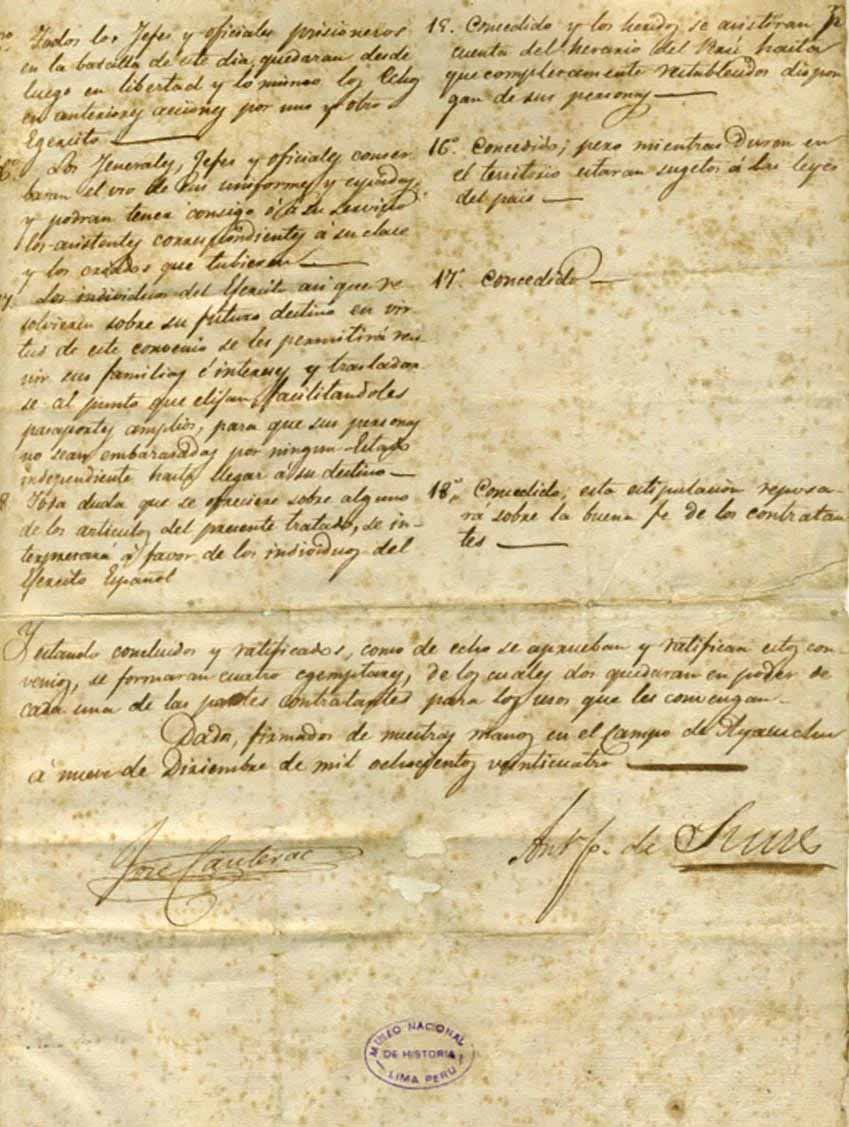 Todos los Jefes y oficiales prisioneros
en la batalla de este dia, quedaran desde
luego en libertad y lo mismo los Echos
en anteriores acciones por uno y otro
Egercito
Los Jenerales, Jefes y oficiales conser
baran el uso de sus uniformes y espadas,
y podran tener consigo á su servicio
los asistentes correspondientes á su clase
y los criados que tubieren
Los individuos del Ejercito asi que re
solvieren sobre su futuro destino en vir
tud de este convenio se les permitirá reu
nir sus familias é intereses y trasladar
se al punto que elijan, facilitandoles
pasaportes amplios, para que sus personas
no sean embarasadas por ningun Estado
independiente hasta llegar a su destino
Toda duda que se ofreciere sobre alguno
de los articulos del presente tratado, se in-
terpretará á favor de los individuos del
Ejercito Español
15. Concedido y los heridos se asistiran p
cuenta del herario del Pais hasta
que completamente restablecidos dispon
gan de sus personas
16º. Concedido; pero mientras duren en
el territorio estaran sugetos á las leyes
del pais
17º. Concedido
18º. Concedido; esta estipulacion reposa-
rá sobre la buena fe de los contratan
tes
Y estando concluidos y ratificados, como de echo se aprueban y ratifican estos con-
venios, se formaran cuatro egemplares, de los cuales dos quedaran en poder de
cada una de las partes contratantes para los usos que les convengan
Dado, firmados de nuestras manos en el Campo de Ayacucho
á nueve de Diziembre de mil ochocientos veinticuatro
José Canterac
Antº. J. de Sucre
MUSEO NACIONAL
DE HISTORIA
LIMA PERU